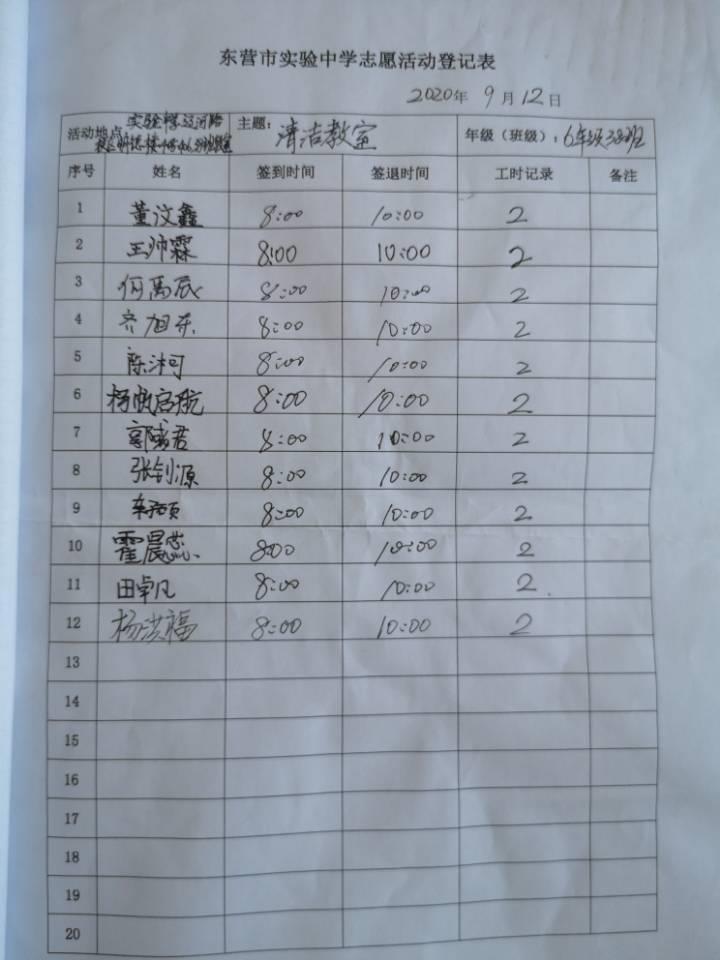 东营市实验中学志愿活动登记表
2020年 9月12日
活动地点 实验中学 主题: 清洁教室 年级（班级）: 6年级38班
序号 姓名 签到时间 签退时间 工时记录 备注
1 董汶鑫 8:00 10:00 2
2 王帅霖 8:00 10:00 2
3 何禹辰 8:00 10:00 2
4 齐旭东 8:00 10:00 2
5 陈沐可 8:00 10:00 2
6 杨 启航 8:00 10:00 2
7 郭 君 8:00 10:00 2
8 张钊源 8:00 10:00 2
9 8:00 10:00 2
10 霍晨蕊 8:00 10:00 2
11 田卓凡 8:00 10:00 2
12 杨洪福 8:00 10:00 2
13
14
15
16
17
18
19
20